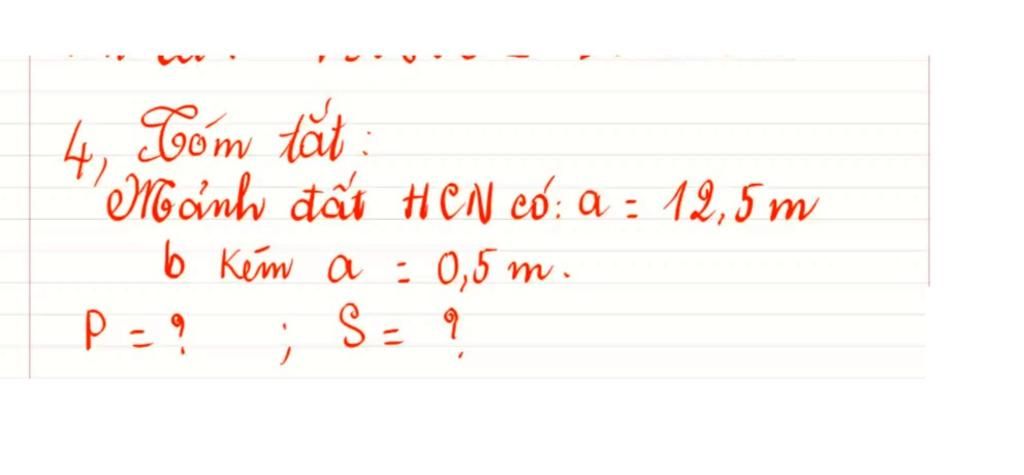 4, Tóm tắt:
Mảnh đất HCN có: a = 12,5 m
b kém a = 0,5 m.
P = ? ; S = ?